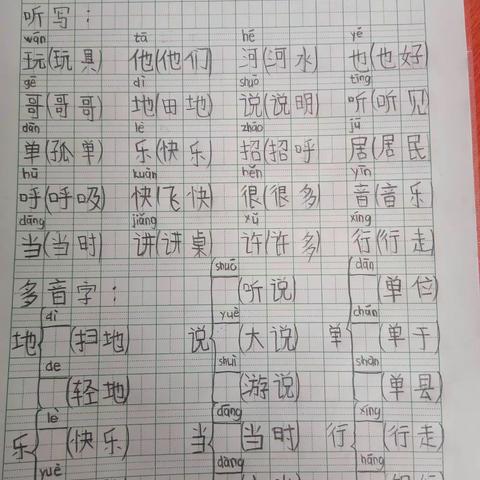 听写：
wán tā hé yě
玩(玩具) 他(他们) 河(河水) 也(也好)
gē dì shuō tīng
哥(哥哥) 地(田地) 说(说明) 听(听见)
dān lè zhāo jū
单(孤单) 乐(快乐) 招(招呼) 居(居民)
hū kuài hěn yīn
呼(呼吸) 快(飞快) 很(很多) 音(音乐)
dāng jiǎng xǔ xíng
当(当时) 讲(讲桌) 许(许多) 行(行走)
shuō dān
多音字： (听说) (单位)
dì yuè chán
地 (扫地) 说 (大说) 单 (单于)
de shuì shàn
(轻地) (游说) (单县)
lè dāng xíng
乐 (快乐) 当 (当时) 行 (行走)
yuè dàng háng